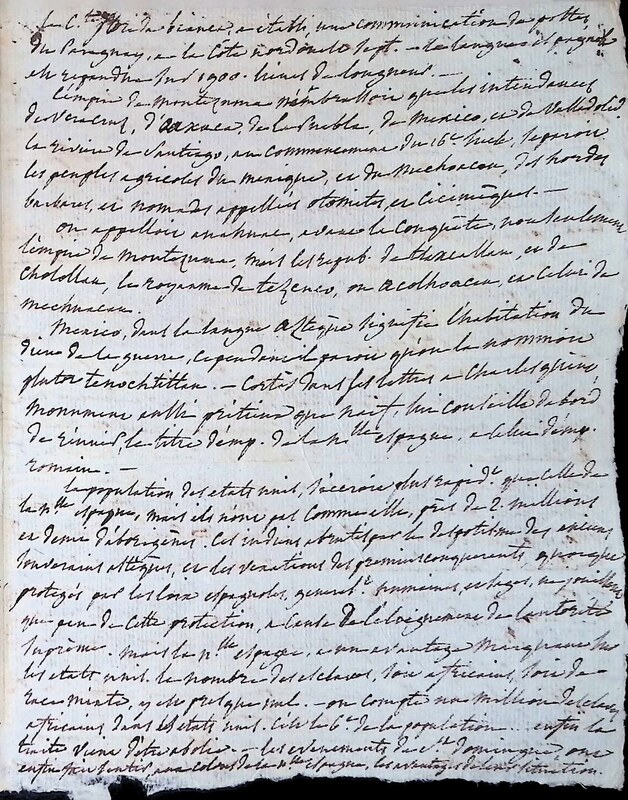 le C.te flor. da bianca, a établi une communication de postes
du Paraguay, a la Côte nord ouest sept. - la langue espagnole
est repandue sur 1900. lieues de longueur. -
l'empire de montezuma n'embrassoit que les intendances
de Veracruz, d'oaxaca, de la Puebla, de Mexico, et de Valladolid
la riviere de Santiago, au commencement du 16e siecle, separoit
les peuples agricoles du mexique, et du Mechoacan, des hordes
barbares, et nomades appellées otomites, et cicimeques. -
on appelloit anahuac, avant la Conquête, non seulement
l'empire de montezuma, mais les repub. de tlaxcallan, et de
Cholollan, le royaume de tezcuco, ou acolhoacan, et celui de
mechuacan.
Mexico, dans la langue aztèque signifie l'habitation du
dieu de la guerre, cependant il paroit qu'on la nommoit
plutot tenochtitlan. - Cortès dans ses lettres a Charles quint,
monument aussi pretieux que naif, lui conseille d'abord
de reunir, le titre d'emp. de la n.lle espagne, a celui d'emp.
romain. -
la population des etats unis, s'accroit plus rapid.t que celle de
la n.lle espagne, mais ils n'ont pas comme elle, près de 2. millions
et demi d'aborigènes. Ces indiens abrutis par le despotisme des anciens
souverains aztèques, et les vexations des premiers conquerants, quoique
protegés par les loix espagnoles, general.t humaines, et sages, ne jouissent
que peu de cette protection, a cause de l'éloignement de l'autorité
suprême, mais la n.lle espagne, a un avantage marquant sur
les etats unis. le nombre des esclaves, soit africains, soit de
race mixte, y est presque nul. - on compte un million d'esclaves
africains, dans les etats unis. C'est le 6e de la population. - enfin la
traite vient d'être abolie. - les evenements de St. domingue ont
enfin fait sentir, aux colons de la n.lle espagne, les avantages de leur situation.